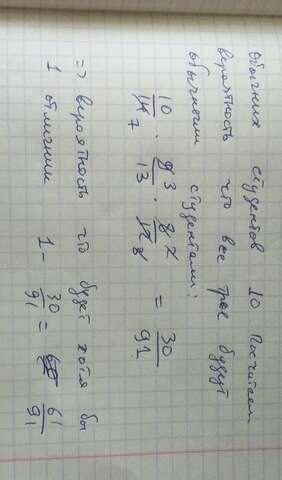 обычных студентов 10 Посчитаем
вероятность что все трое будут
обычными студентами:
10/14 7 · 9 3/13 · 8 2/12 3 = 30/91
=> вероятность что будет хотя бы
1 отличник 1 - 30/91 = 61/91